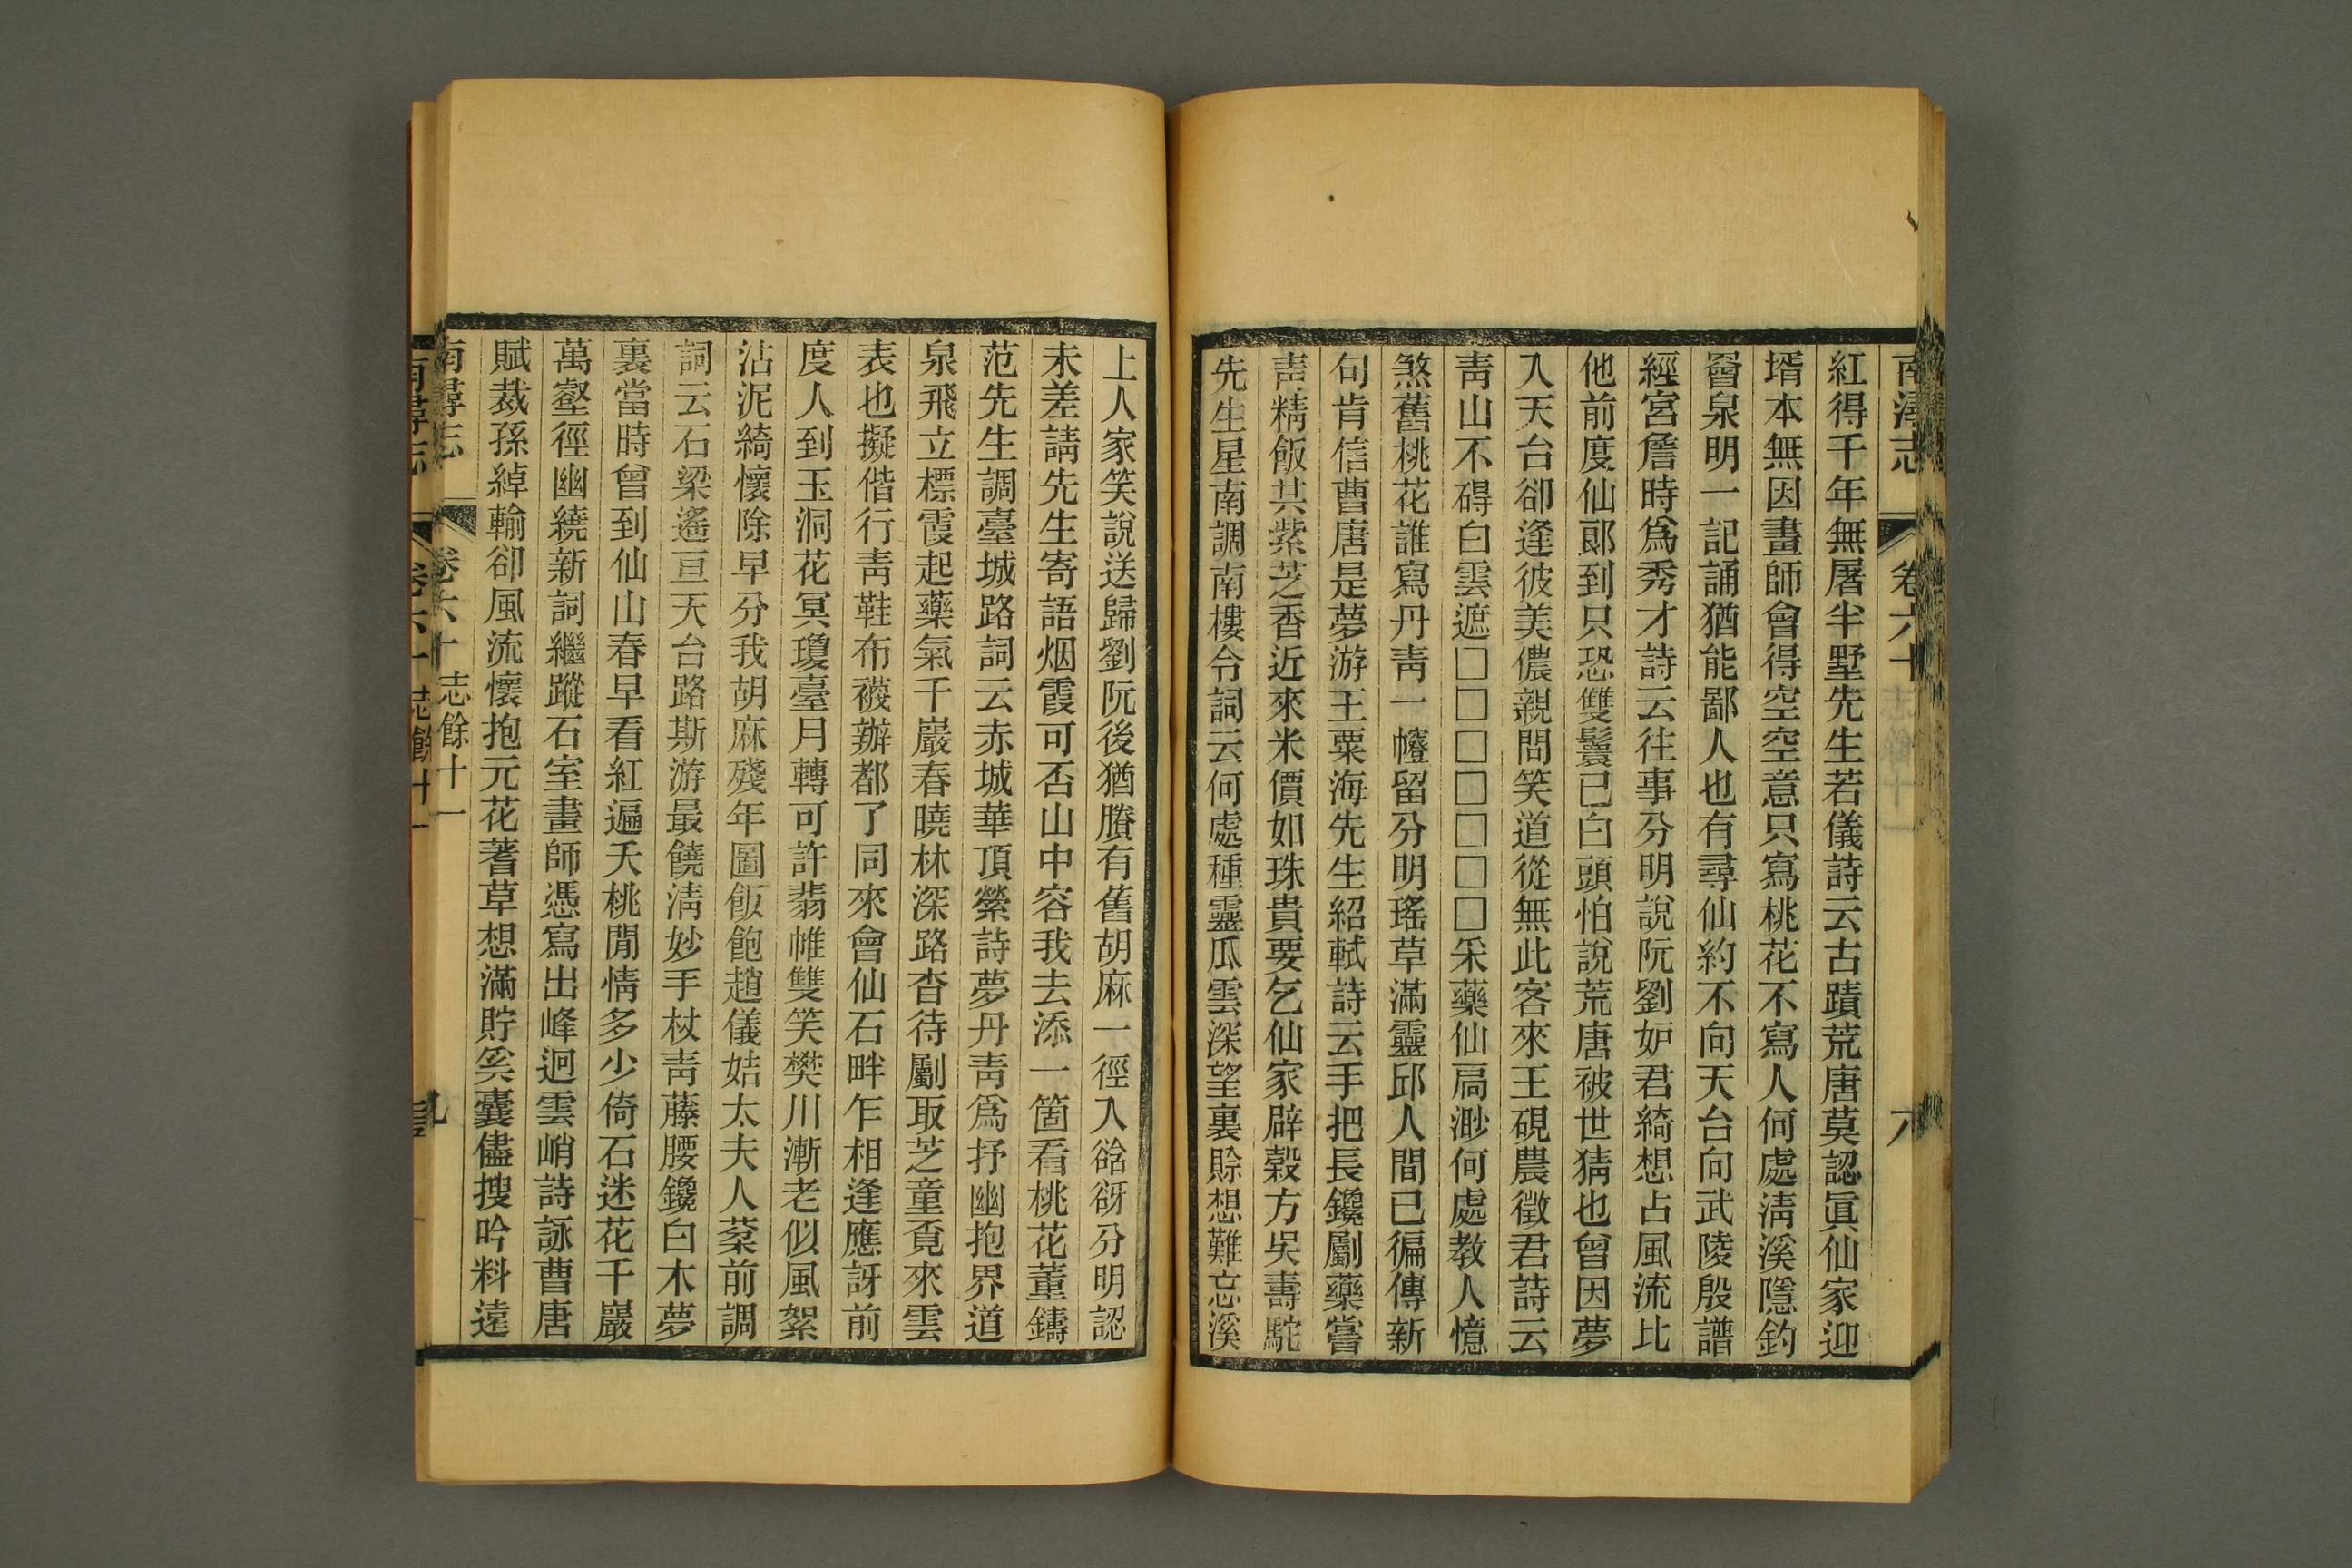 南潯志
卷六十
八
紅得千年無屠半墅先生若儀詩云古蹟荒唐莫認眞仙家迎
壻本無因畫師會得空空意只寫桃花不寫人何處淸溪隱釣
罾泉明一記誦猶能鄙人也有尋仙約不向天台向武陵殷譜
經宮詹時爲秀才詩云往事分明說阮劉妒君綺想占風流比
他前度仙郞到只恐雙鬟已白頭怕說荒唐被世猜也曾因夢
入天台卻逢彼美儂親問笑道從無此客來王硯農徵君詩云
靑山不碍白雲遮□□□□□□□采藥仙扃渺何處教人憶
煞舊桃花誰寫丹靑一㡧留分明瑤草滿靈邱人間已徧傳新
句肯信曹唐是夢游王粟海先生紹軾詩云手把長鑱劚藥嘗
靑精飯共紫芝香近來米價如珠貴要乞仙家辟穀方吳壽駝
先生星南調南樓令詞云何處種靈瓜雲深望裏賒想難忘溪
上人家笑說送歸劉阮後猶賸有舊胡麻一徑入谽谺分明認
未差請先生寄語烟霞可否山中容我去添一箇看桃花董鑄
范先生調臺城路詞云赤城華頂縈詩夢丹靑爲抒幽抱界道
泉飛立標霞起藥氣千巖春曉林深路杳待劚取芝童覓來雲
表也擬偕行靑鞋布襪辦都了同來會仙石畔乍相逢應訝前
度人到玉洞花冥瓊臺月轉可許翡帷雙笑樊川漸老似風絮
沾泥綺懷除早分我胡麻殘年圖飯飽趙儀姞太夫人棻前調
詞云石梁遙亘天台路斯游最饒淸妙手杖靑藤腰鑱白木夢
裏當時曾到仙山春早看紅遍夭桃閒情多少倚石迷花千巖
萬壑徑幽繞新詞繼蹤石室畫師憑寫出峰迴雲峭詩詠曹唐
賦裁孫綽輸卻風流懷抱元花蓍草想滿貯奚囊儘搜吟料遠
南潯志
卷六十
志餘十一
九